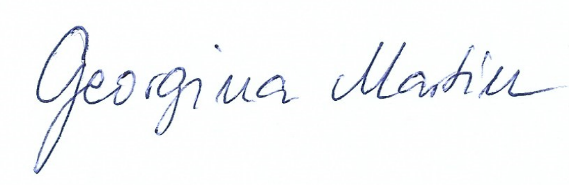 Georgina Martin